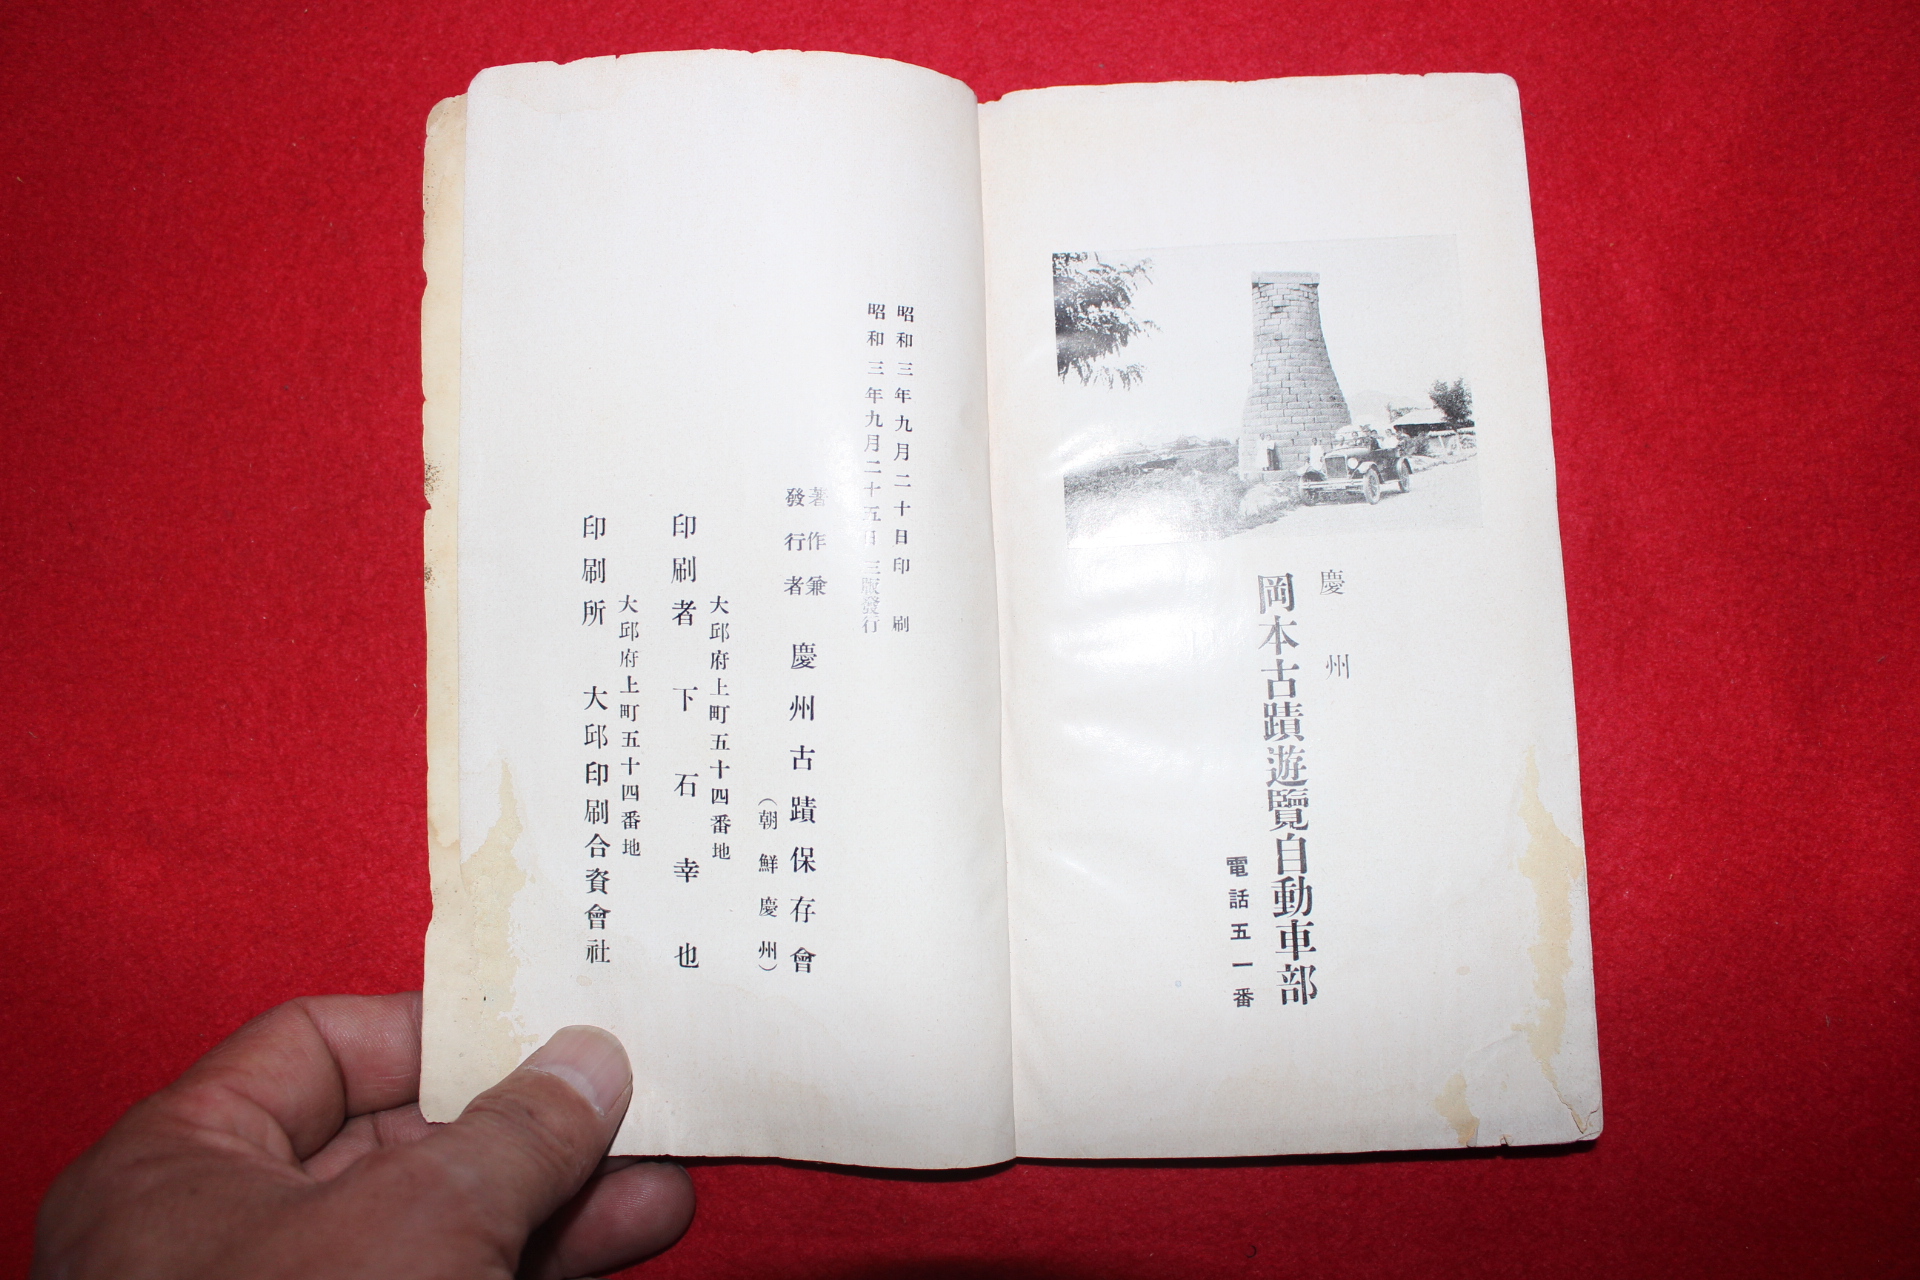 慶州
岡本古蹟遊覽自動車部
電話五一番
昭和三年九月二十日印刷
昭和三年九月二十五日三版發行
著作兼
發行者
慶州古蹟保存會
（朝鮮慶州）
大邱府上町五十四番地
印刷者 下石幸也
大邱府上町五十四番地
印刷所 大邱印刷合資會社